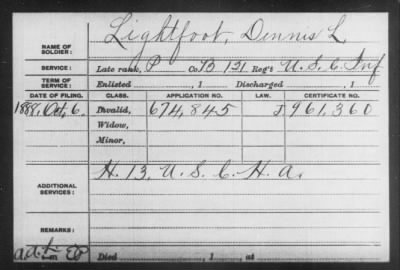 Lightfoot, Dennis L
NAME OF SOLDIER:
SERVICE: Late rank, P Co. B 121 Reg't U. S. C. Inf
TERM OF SERVICE: Enlisted , 1 Discharged , 1
DATE OF FILING. CLASS. APPLICATION NO. LAW. CERTIFICATE NO.
1888, Oct. 6. Invalid, 674,845 961,360
Widow,
Minor,
H. 13, U. S. C. H. A.
ADDITIONAL SERVICES:
REMARKS:
Died , 1 , at